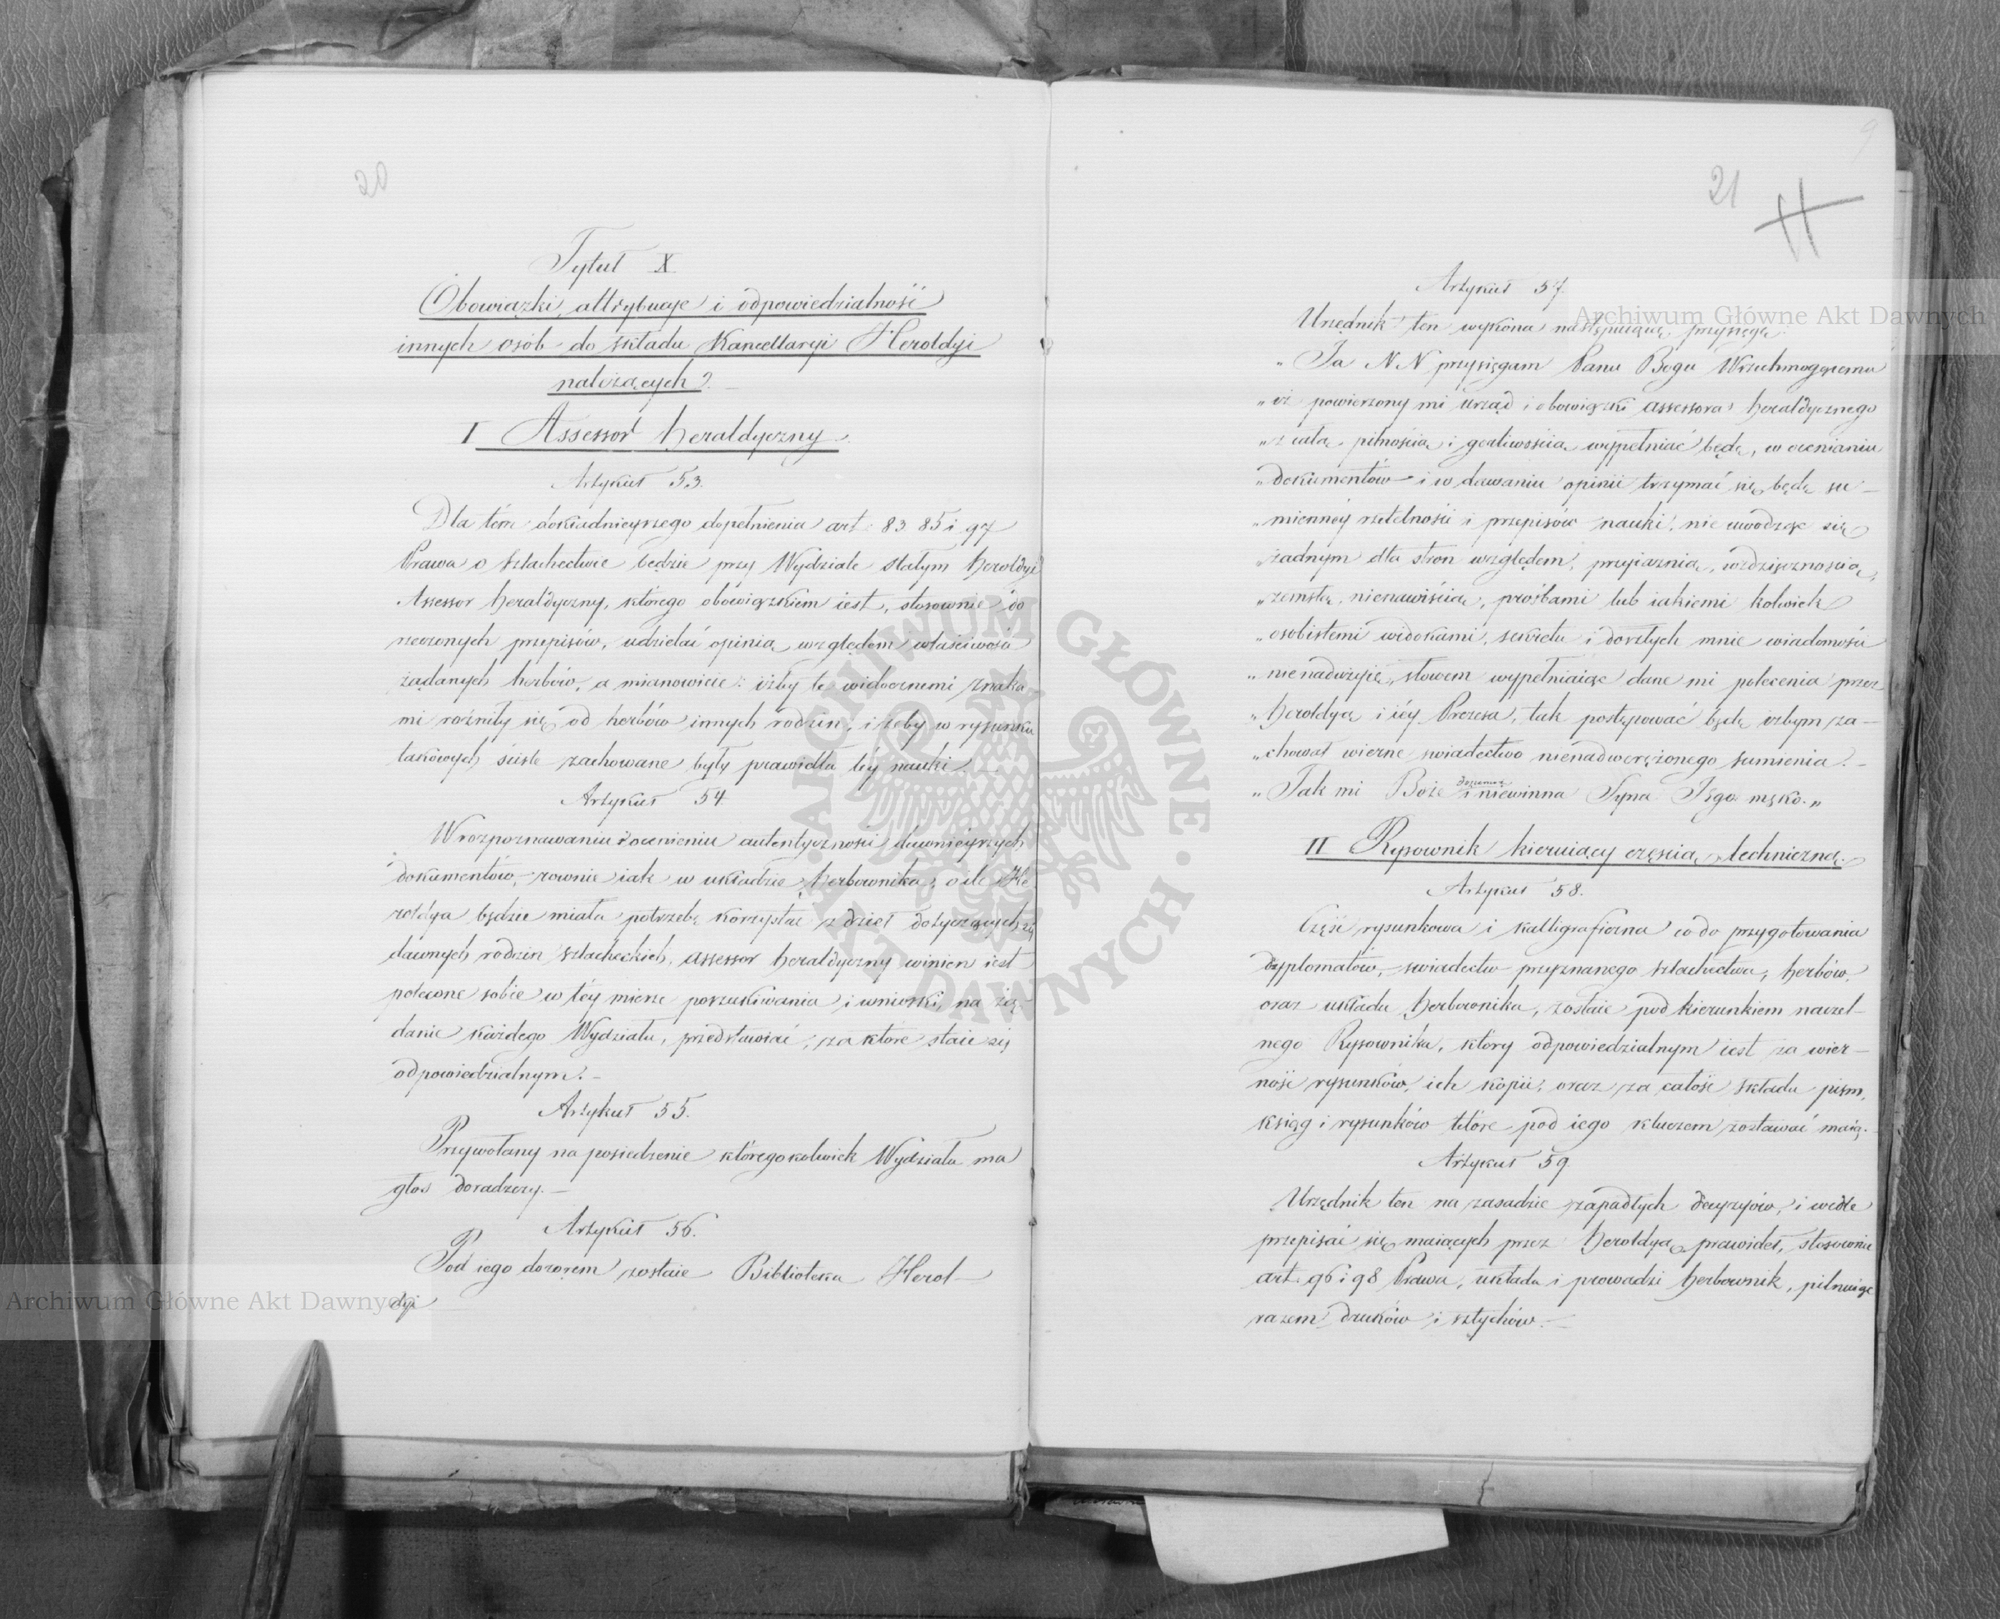 20
Tytuł X
Obowiązki, attrybucye i odpowiedzialność
innych osób do składu Kancellaryi Heroldyi
należących.
I Assessor heraldyczny.
Artykuł 53.
Dla tém dokładnieyszego dopełnienia art. 83 85 i 97
Prawa o szlachectwie będzie przy Wydziale stałym Heroldyi
Assessor heraldyczny, którego obowiązkiem iest, stosownie do
rzeczonych przepisów, udzielać opinią względem właściwości
żądanych herbów, a mianowicie: iżby te widocznemi znaka
mi rożniły się od herbów innych rodzin, i żeby w rysunku
takowych ściśle zachowane były prawidła téy nauki.
Artykuł 54.
W rozpoznawaniu i ocenieniu autentyczności dawniéyszych
dokumentów, rownie iak w układzie herbownika, o ile He
roldya będzie miała potrzebę korzystać z dzieł dotyczących się
dawnych rodzin szlacheckich, assessor heraldyczny winien iest
polecone sobie w téy mierze poszukiwania i wnioski na żą-
danie każdego Wydziału, przedstawiać, za które staie się
odpowiedzialnym.
Artykuł 55.
Przywołany na posiedzenie któregokolwiek Wydziału ma
głos doradczy.
Artykuł 56.
Pod iego dozorem zostaie Biblioteka Herol-
dyi
9
21
Artykuł 57.
Urzędnik ten wykona następuiącą przysięgę:
„ Ja N N przysięgam Panu Bogu Wszechmogącemu
„ iż powierzony mi urząd i obowiązki assessora heraldycznego
„ z całą pilnością i gorliwością wypełniać będę, w ocenianiu
„ dokumentów i w dawaniu opinii trzymać się będę su-
„ mienney rzetelności i przepisów nauki, nie uwodząc się
„ żadnym dla stron względem, przyiaznią, wdzięcznością,
„ zemstą, nienawiścią, prośbami lub iakiemi kolwiek
„ osobistemi widokami, sekretu i doszłych mnie wiadomości
„ nie nadużyię, słowem wypełniaiąc dane mi polecenia przez
„ Heroldyą i iéy Prezesa, tak postępować będę iżbym za-
„ chował wierne swiadectwo nienadwerężonego sumienia.
„ Tak mi Boże dopomóż i niewinna Syna Jego męko. „
II Rysownik kieruiący częścią techniczną.
Artykuł 58.
Część rysunkowa i kalligraficzna co do przygotowania
dyplomatów, swiadectw przyznanego szlachectwa, herbów,
oraz układu herbownika, zostaie pod kierunkiem naczel-
nego Rysownika, który odpowiedzialnym iest za wier-
ność rysunków, ich kopii, oraz za całość składu pism,
ksiąg i rysunków które pod iego kluczem zostawać maią.
Artykuł 59.
Urzędnik ten na zasadzie zapadłych decyzyów, i wedle
przepisać się maiących przez Heroldyą prawideł, stosownie
art. 96 i 98 Prawa, układa i prowadzi herbownik, pilnuiąc
razem druków i sztychów.
Archiwum Główne Akt Dawnych
Archiwum Główne Akt Dawnych
ARCHIWUM GŁÓWNE · AKT DAWNYCH ·